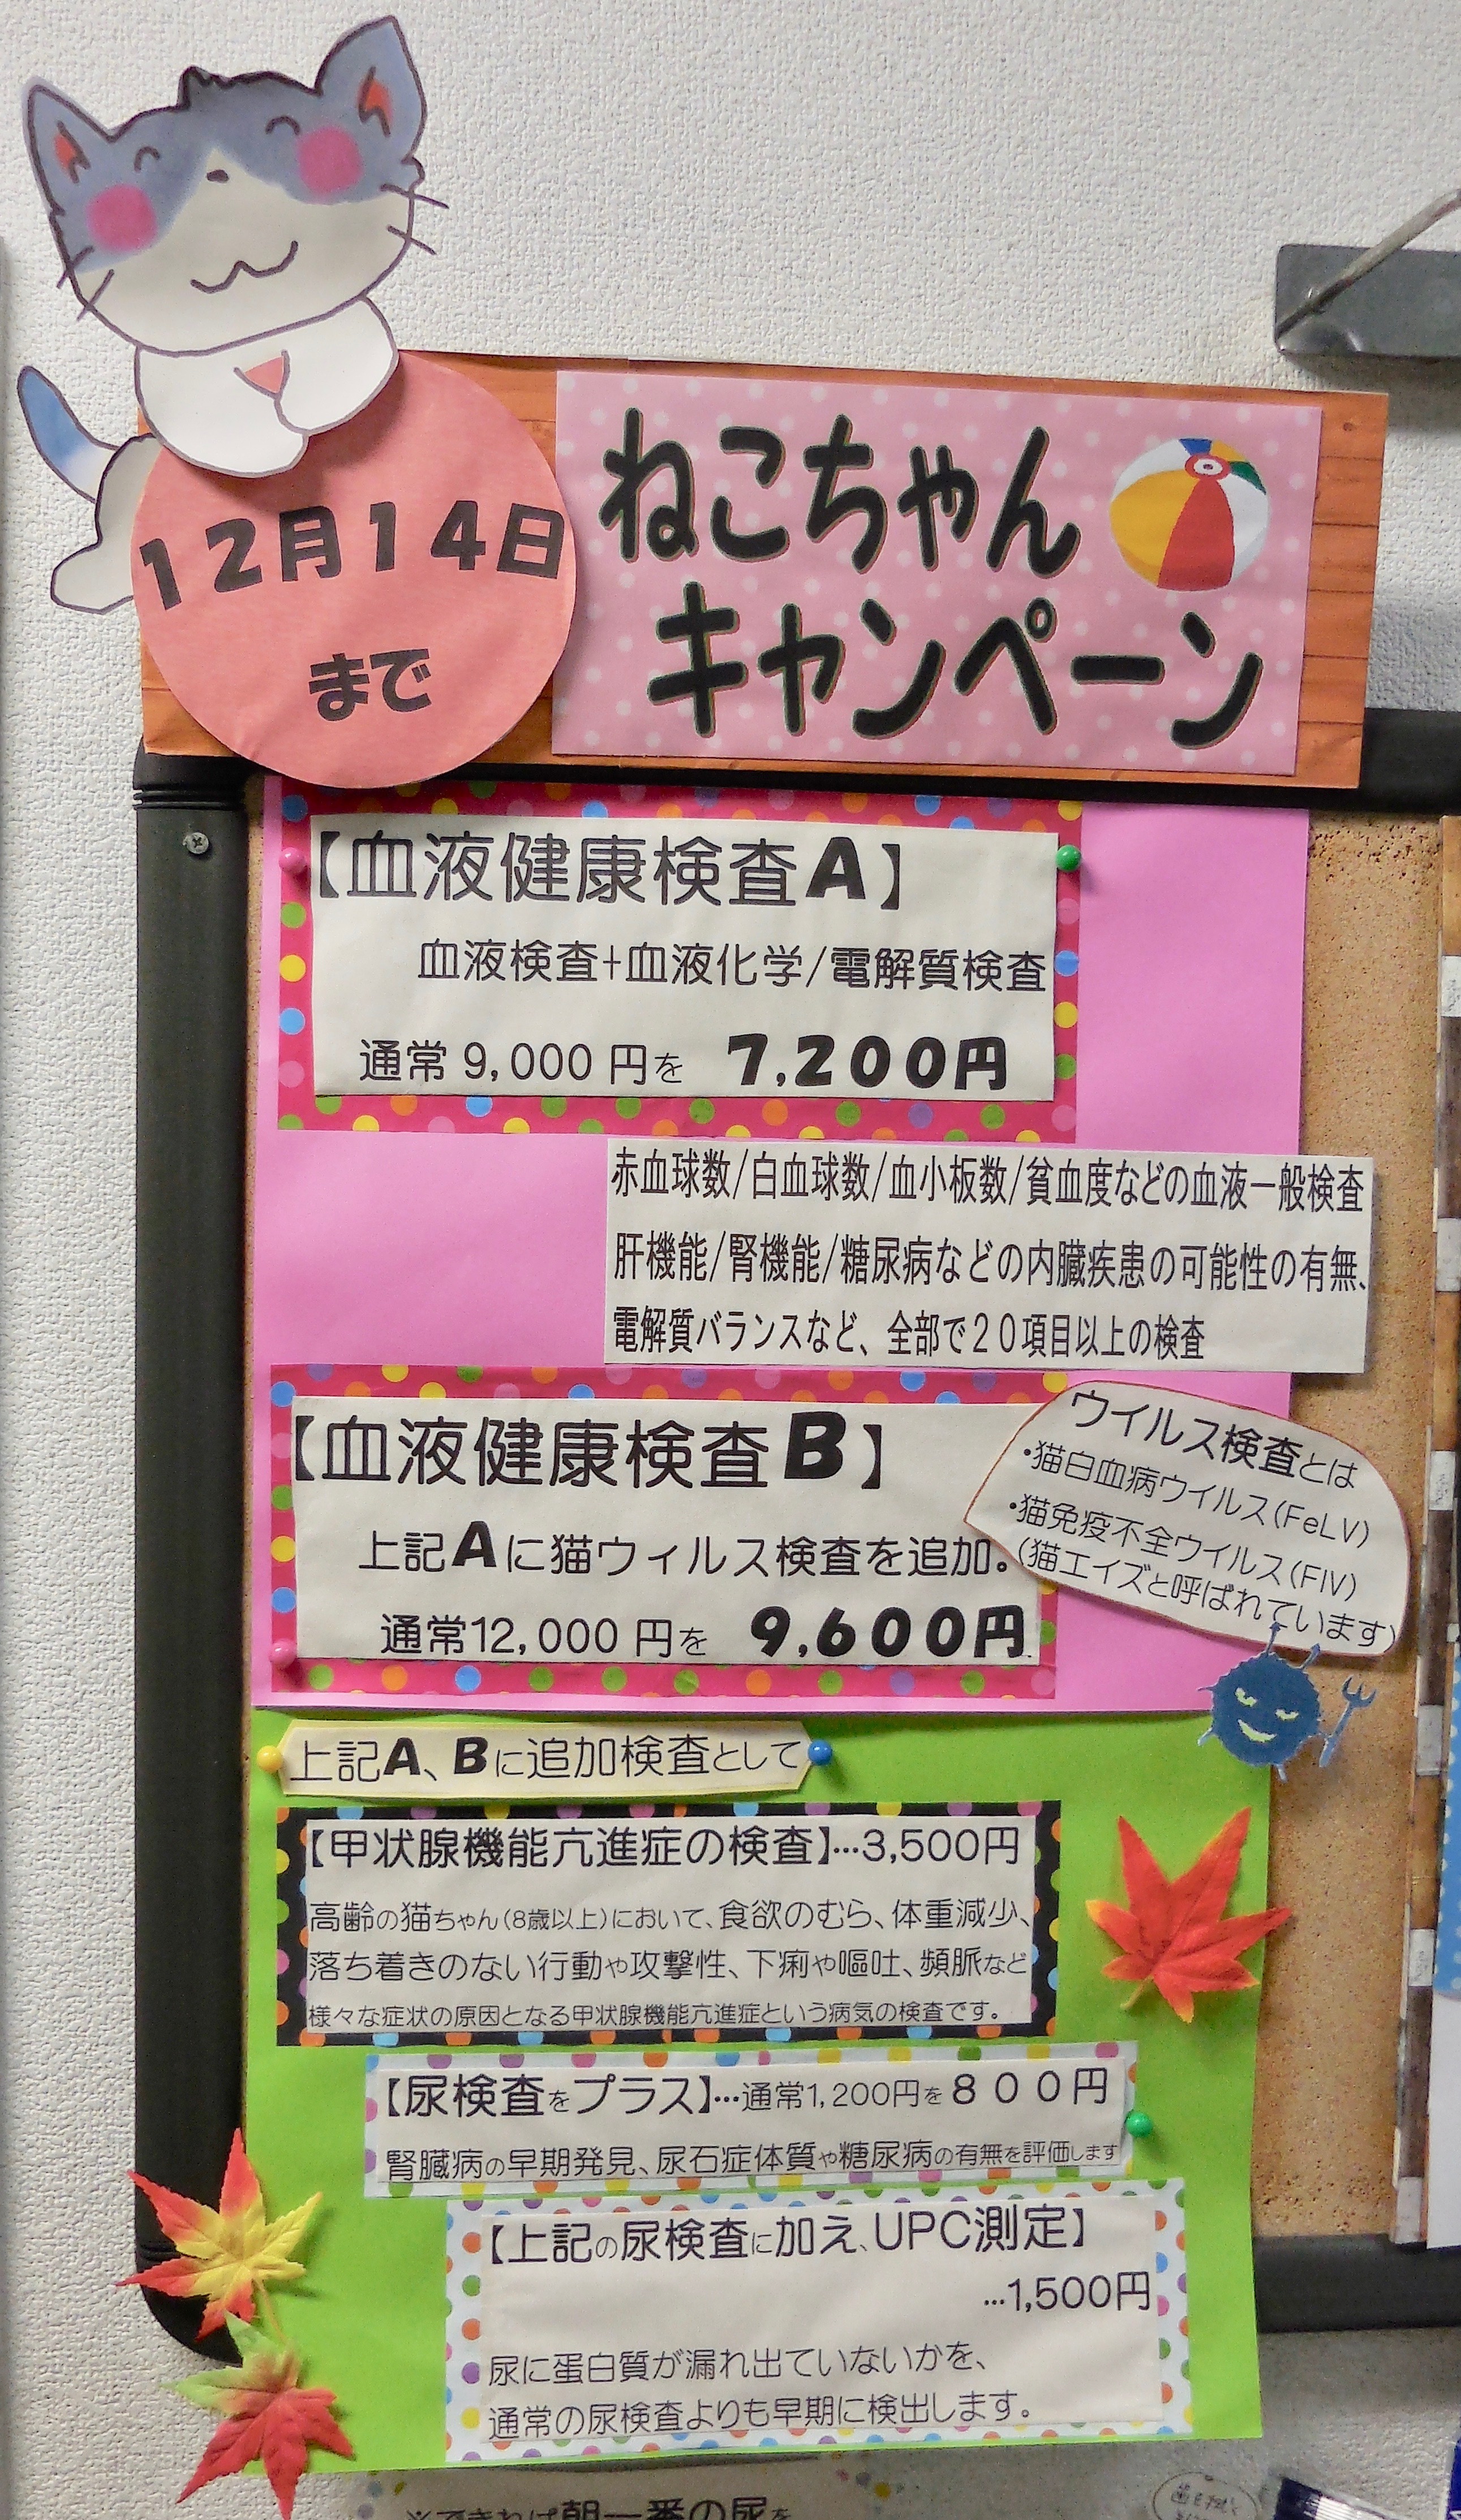 12月14日
まで
ねこちゃん
キャンペーン
【血液健康検査A】
血液検査+血液化学/電解質検査
通常 9,000 円を 7,200円
赤血球数/白血球数/血小板数/貧血度などの血液一般検査
肝機能/腎機能/糖尿病などの内臓疾患の可能性の有無、
電解質バランスなど、全部で20項目以上の検査
【血液健康検査B】
上記Aに猫ウィルス検査を追加。
通常12,000 円を 9,600円
ウイルス検査とは
・猫白血病ウイルス(FeLV)
・猫免疫不全ウイルス(FIV)
(猫エイズと呼ばれています)
上記A、Bに追加検査として
【甲状腺機能亢進症の検査】…3,500円
高齢の猫ちゃん(8歳以上)において、食欲のむら、体重減少、
落ち着きのない行動や攻撃性、下痢や嘔吐、頻脈など
様々な症状の原因となる甲状腺機能亢進症という病気の検査です。
【尿検査をプラス】…通常1,200円を800円
腎臓病の早期発見、尿石症体質や糖尿病の有無を評価します
【上記の尿検査に加え、UPC測定】
…1,500円
尿に蛋白質が漏れ出ていないかを、
通常の尿検査よりも早期に検出します。
※できれば朝一番の尿を